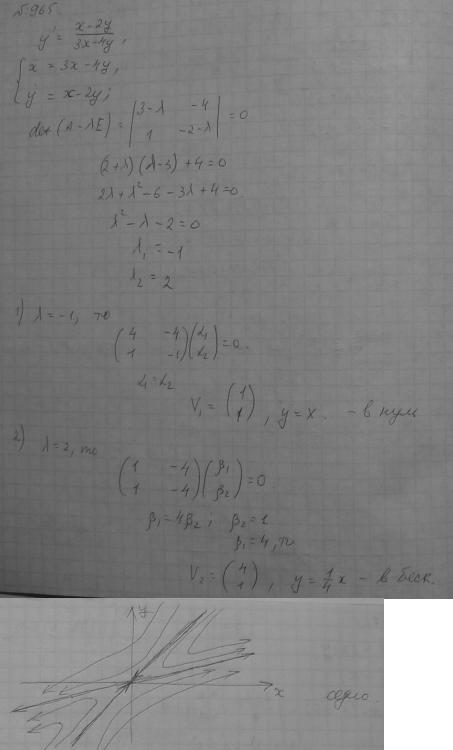 №965.
y' = x-2y / 3x-4y,
{ ẋ = 3x-4y,
ẏ = x-2y;
det(A-λE) = | 3-λ -4 | = 0
| 1 -2-λ |
(2+λ)(λ-3)+4=0
2λ+λ²-6-3λ+4=0
λ²-λ-2=0
λ₁ = -1
λ₂ = 2
1) λ=-1, то
( 4 -4 ) ( α₁ ) =0.
( 1 -1 ) ( α₂ )
α₁=α₂
V₁ = ( 1 ), y=x. - в нуле
( 1 )
2) λ=2, то
( 1 -4 ) ( β₁ ) =0
( 1 -4 ) ( β₂ )
β₁=4β₂; β₂=1
β₁=4, то
V₂ = ( 4 ), y=1/4 x - в беск.
( 1 )
y
x
седло.